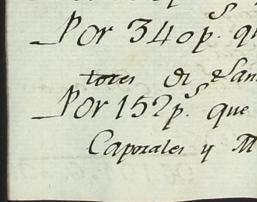 Por 340 p.s qu
tores de San
Por 152 p.s que
Caporales y M